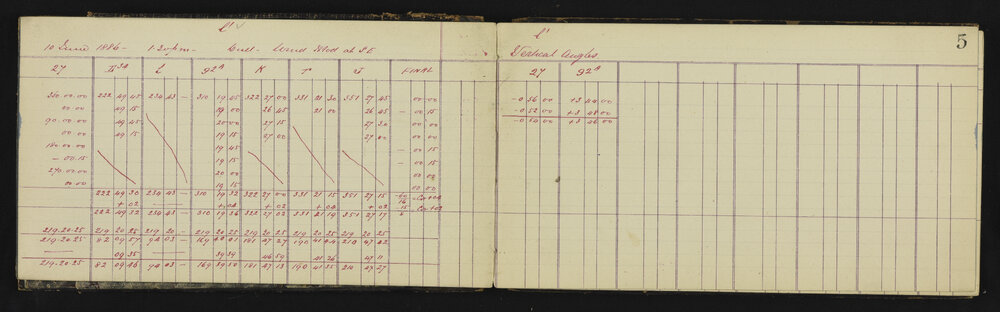 L' √
10 June 1886 - 1.30 pm - Cull - Wind Mod at S.E
27 L 92A K T J FINAL
360.00.00 222 49 45 234 43 - 310 19 45 322 27 00 331 21 30 351 27 45 00 00
00.00 49 15 19 00 26 45 21 00 26 45 - 00 15
90.00.00 49 45 20 00 27 15 27 30 00 00
00.00 49 15 19 15 27 00 27 00 - 00 15
180.00.00 19 45 00 00
- 00.15 19 15 - 00 15
270.00.00 20 00 00 00
00.00 19 15 00 00
222 49 30 234 43 - 310 19 32 322 27 00 331 21 15 351 27 15
+ 02 + 02 + 02 + 02
222 49 32 234 43 - 310 19 36 322 27 02 331 21 19 351 27 17
219.20.25 219 20 25 219 20 - 219 20 25 219 20 25 219 20 25 219 20 25
219.20.25 82 09 57 94 03 - 169 40 01 181 47 27 190 41 44 210 47 42
09 35 39 39 46 59 41 26 47 11
219.20.25 82 09 46 94 03 - 169 39 50 181 47 13 190 41 35 210 47 27
L'
5
Vertical Angles
27 92A
-0 56 00 +3 44 00
-0 52 00 +3 48 00
-0 54 00 +3 46 00